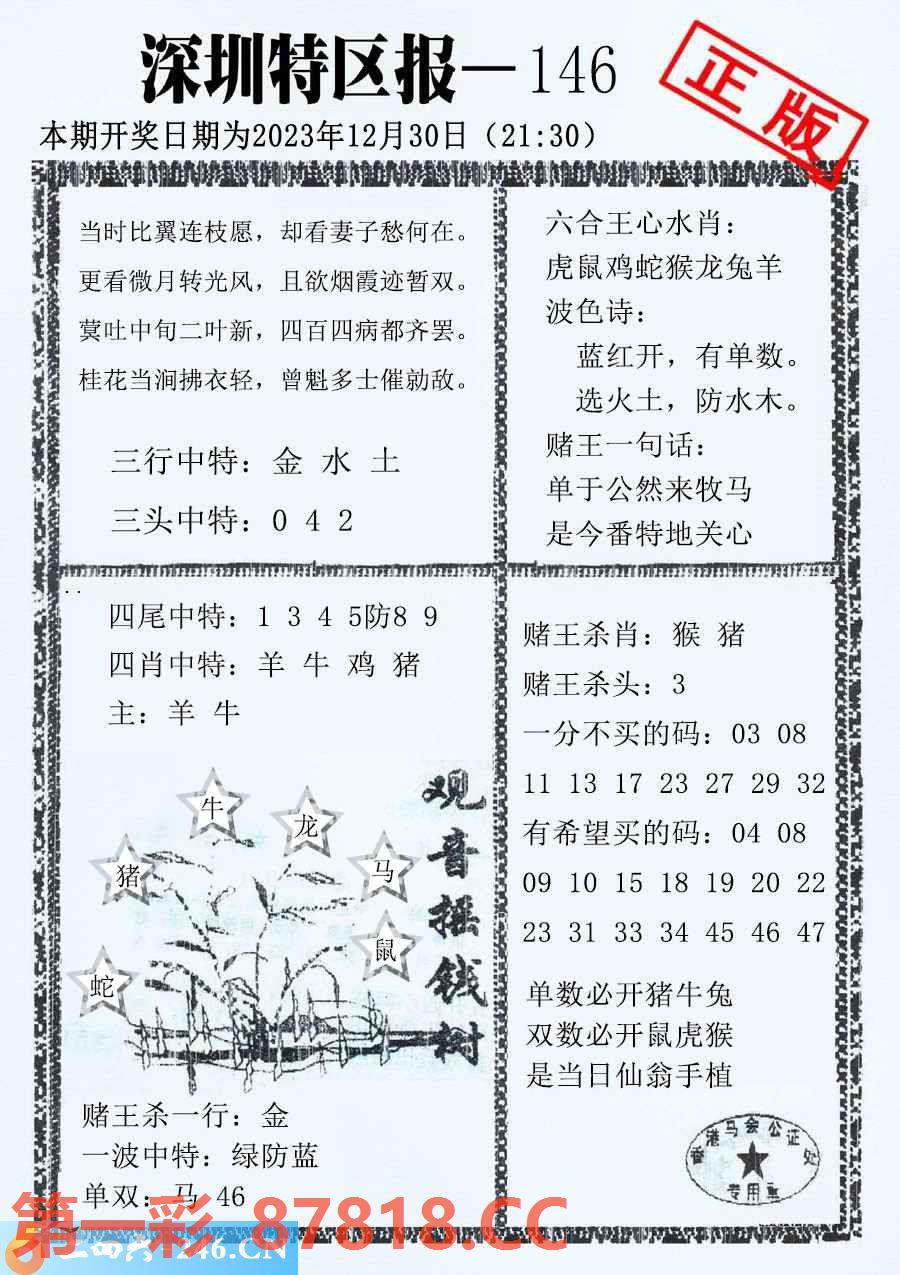 深圳特区报—146
正版
本期开奖日期为2023年12月30日（21:30）
当时比翼连枝愿，却看妻子愁何在。
更看微月转光风，且欲烟霞迹暂双。
蓂吐中旬二叶新，四百四病都齐罢。
桂花当涧拂衣轻，曾魁多士催勍敌。
三行中特：金 水 土
三头中特：0 4 2
六合王心水肖：
虎鼠鸡蛇猴龙兔羊
波色诗：
蓝红开，有单数。
选火土，防水木。
赌王一句话：
单于公然来牧马
是今番特地关心
四尾中特：1 3 4 5防8 9
四肖中特：羊 牛 鸡 猪
主：羊 牛
牛
龙
猪
马
鼠
蛇
观音摇钱树
赌王杀一行：金
一波中特：绿防蓝
单双：马 46
赌王杀肖：猴 猪
赌王杀头：3
一分不买的码：03 08
11 13 17 23 27 29 32
有希望买的码：04 08
09 10 15 18 19 20 22
23 31 33 34 45 46 47
单数必开猪牛兔
双数必开鼠虎猴
是当日仙翁手植
香港马会公证处
专用章
第一彩 87818.CC
246.CN